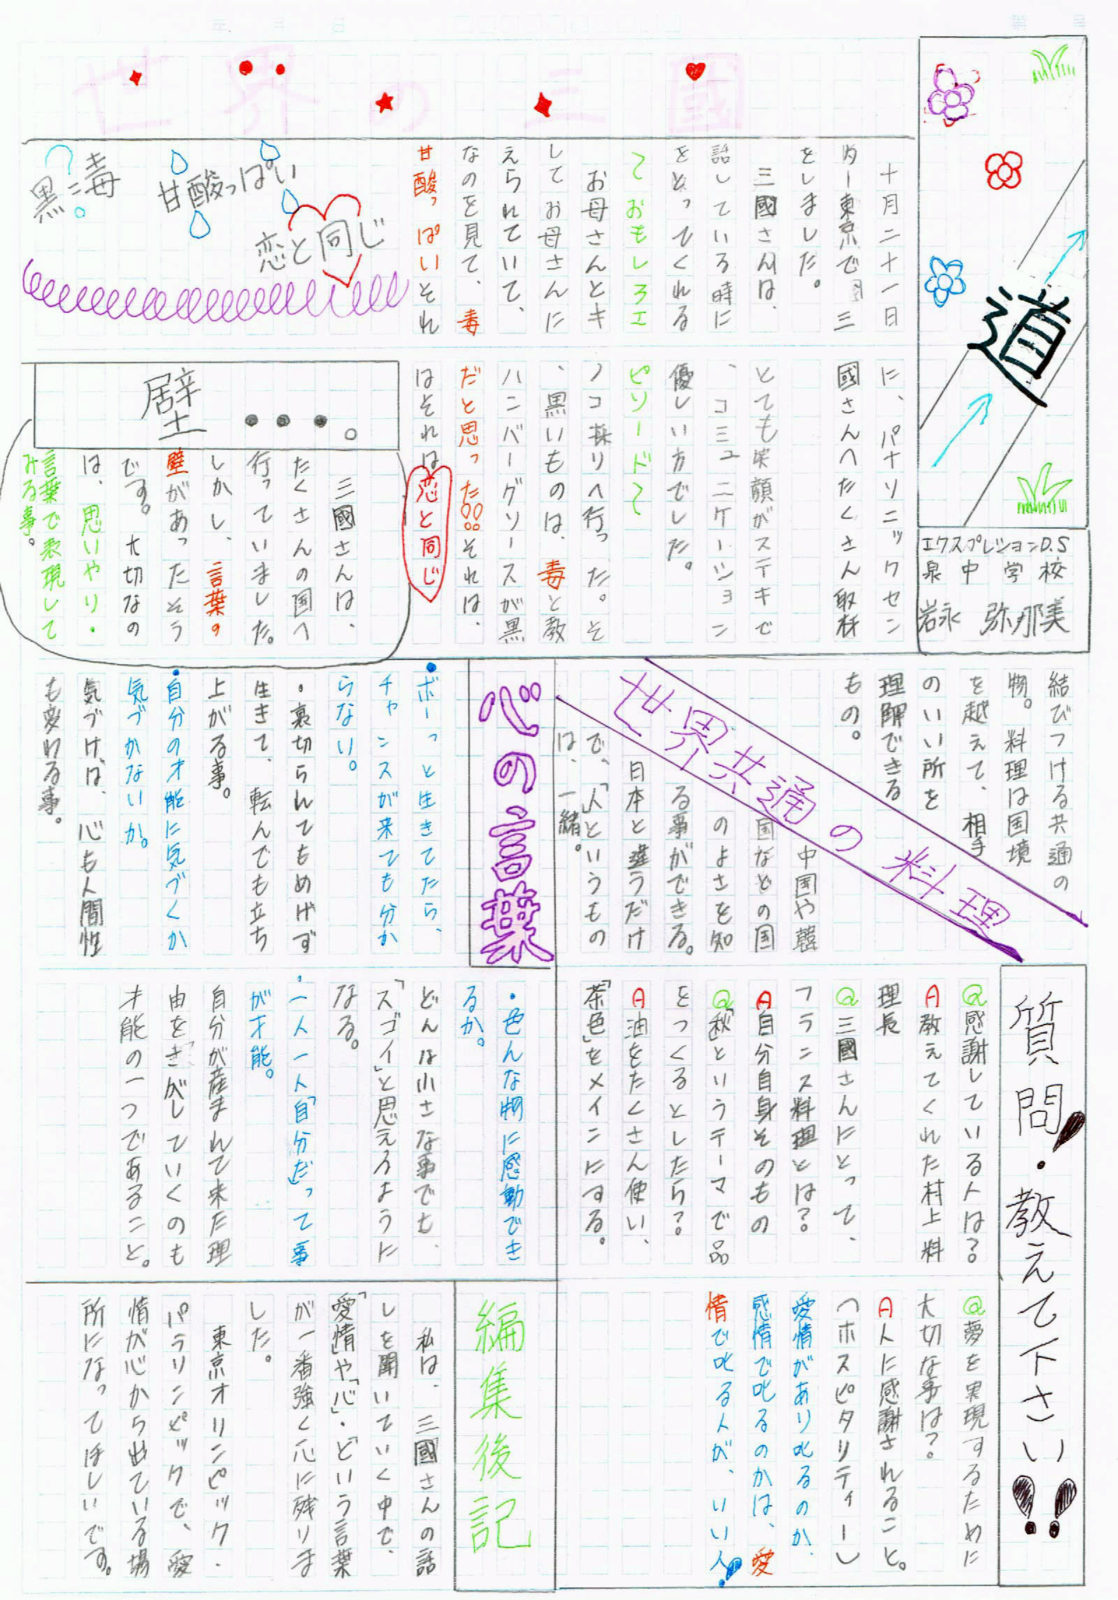 世界の三國
道
エクスプレションD.S
泉中学校
岩永 弥那美
十月二十一日
に、パナソニックセン
ター東京で三
國さんへたくさん取材
をしました。
三國さんは、
とても笑顔がステキで
話している時に
、コミュニケーション
をとってくれる
優しい方でした。
〜おもしろエ
ピソード〜
お母さんとキ
ノコ採りへ行った。そ
してお母さんに
、黒いものは、毒と教
えられていて、
ハンバーグソースが黒
なのを見て、毒
だと思った!!それは、
甘酸っぱいそれ
はそれは恋と同じ
恋と同じ
甘酸っぱい
黒=毒
?
壁・・・。
三國さんは、
たくさんの国へ
行っていました。
しかし、言葉の
壁があったそう
です。大切なの
は、思いやり・
言葉で表現して
みる事。
世界共通の料理
結びつける共通の
物。料理は国境
を越えて、相手
のいい所を
理解できる
もの。
中国や韓
国などの国
のよさを知
る事ができる。
日本と違うだけ
で、「人」というもの
は、一緒。
心の言葉
・ボーっと生きてたら、
チャンスが来ても分か
らない。
・裏切られてもめげず
生きて、転んでも立ち
上がる事。
・自分の才能に気づくか
気づかないか。
気づけば、心も人間性
も変わる事。
・色んな物に感動でき
るか。
どんな小さな事でも、
「スゴイ」と思えるように
なる。
・一人一人「自分だ」って事
が才能。
自分が産まれて来た理
由をさがしていくのも
才能の一つであること。
質問・教えて下さい!!
Q感謝している人は?
A教えてくれた村上料
理長
Q三國さんにとって、
フランス料理とは?
A自分自身そのもの
Q「秋」というテーマで品
をつくるとしたら?
A油をたくさん使い、
「茶色」をメインにする。
Q夢を実現するために
大切な事は?
A人に感謝されること。
(ホスピタリティー)
愛情があり叱るのか、
感情で叱るのかは、愛
情で叱る人が、いい人!
編集後記
私は、三國さんの話
しを聞いていく中で、
「愛情」や「心」・どいう言葉
が一番強く心に残りま
した。
東京オリンピック・
パラリンピックで、愛
情が心から出ている場
所になってほしいです。